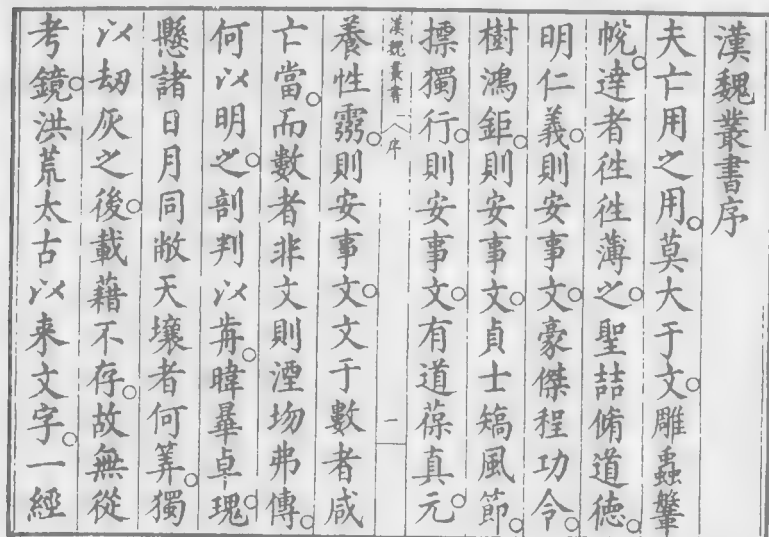 漢魏叢書序
夫亡用之用。莫大于文。雕蟲鞶
帨。達者徃徃薄之。聖喆脩道德。
明仁義。則安事文。豪傑程功令。
樹鴻鉅。則安事文。貞士矯風節。
摽獨行。則安事文。有道葆真元。
漢魏叢書 序 一
養性靈。則安事文。文于數者咸
亡當。而數者非文則湮坳弗傳。
何以明之。剖判以歬。暐曅卓瑰。
懸諸日月同敝天壤者何筭。獨
以刼灰之後。載藉不存。故無從
考鏡。洪荒太古以来文字。一經